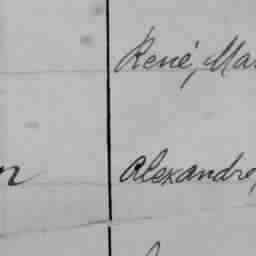 René, Ma
n
Alexandre,